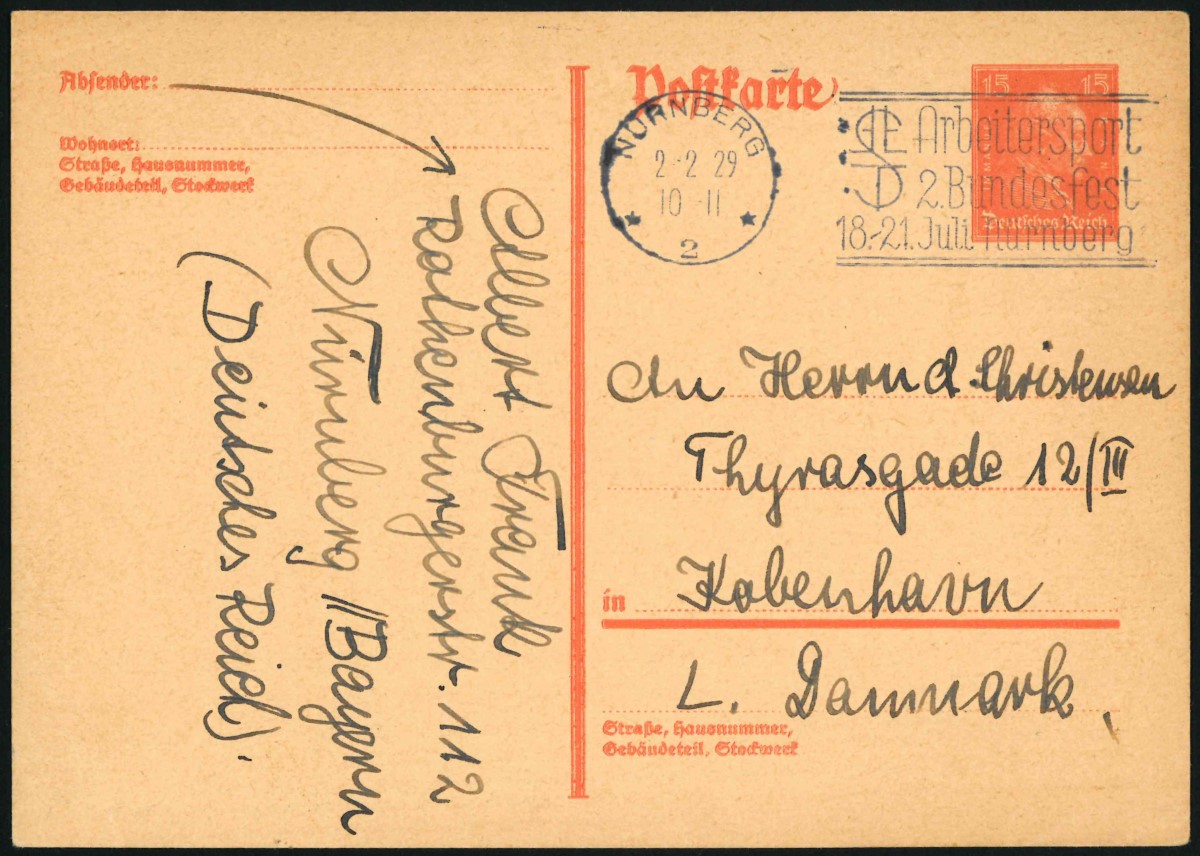 Absender:
Wohnort:
Straße, Hausnummer,
Gebäudeteil, Stockwerk
Albert Frank
Rothenburgerstr. 112
Nürnberg //Bayern
(Deutsches Reich).
Postkarte
NÜRNBERG
2.-2 29
10-11
2
Arbeitersport
2. Bundesfest
18.-21. Juli Nürnberg
15 15
Deutsches Reich
An Herrn d. Christensen
Thyrasgade 12/III
in Kobenhavn
L. Danmark
Straße, Hausnummer,
Gebäudeteil, Stockwerk